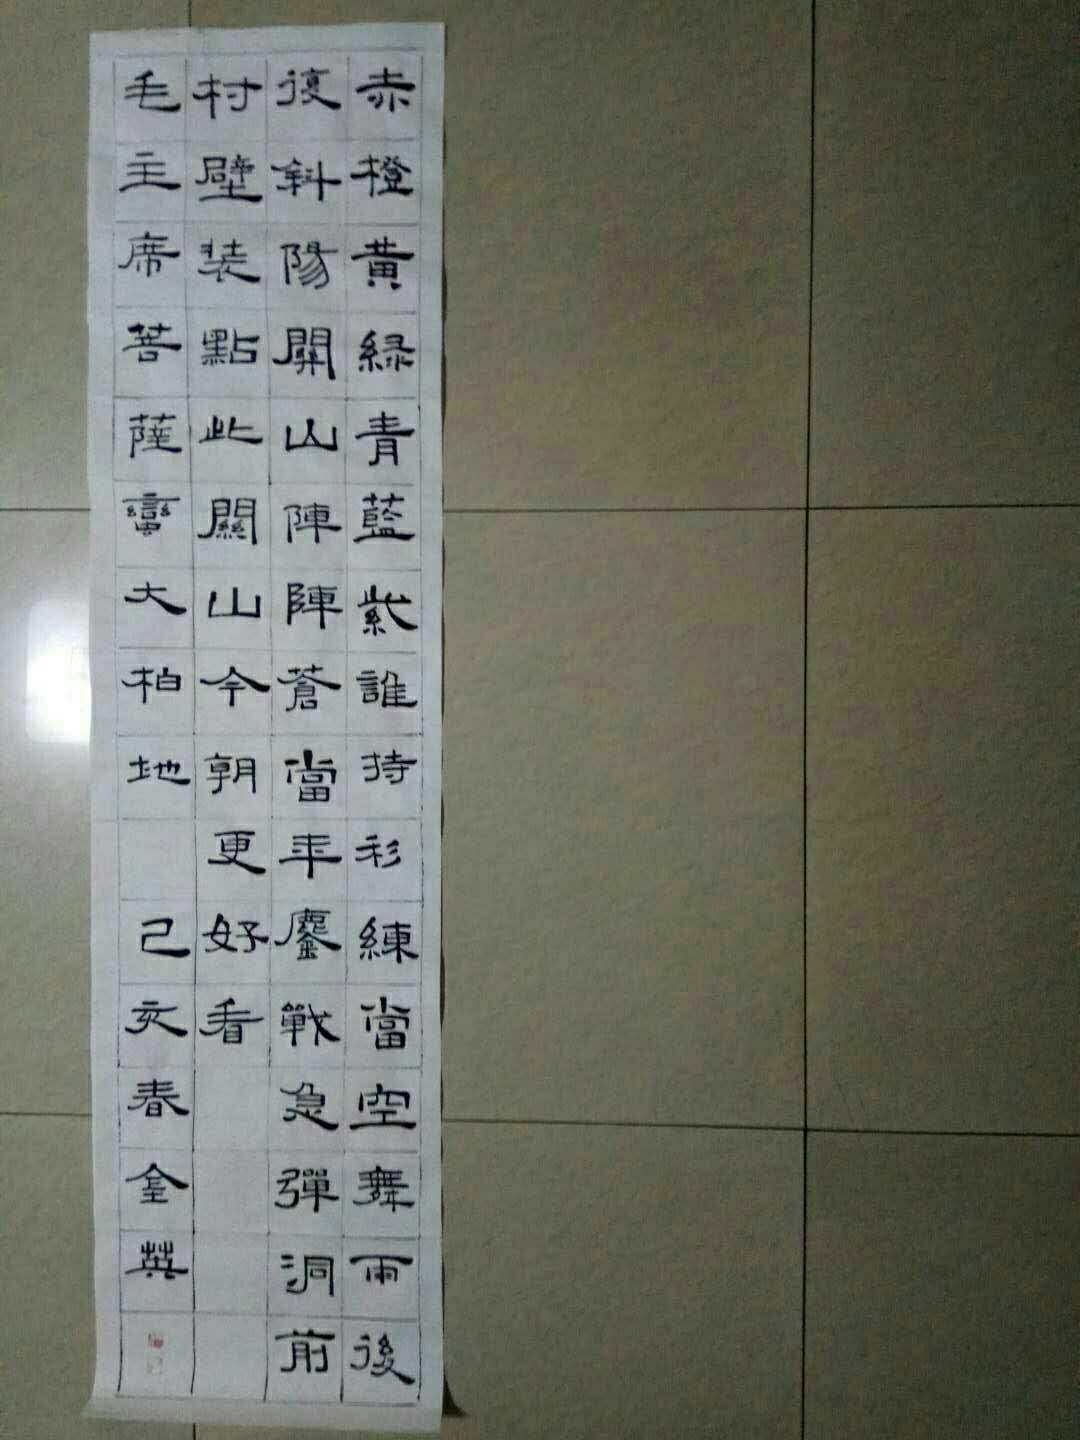 赤橙黄緑青藍紫誰持彩練當空舞雨後
復斜陽関山陣陣蒼當年鏖戰急彈洞前
村壁装點此關山今朝更好看
毛主席菩薩蠻大柏地 己亥春金英